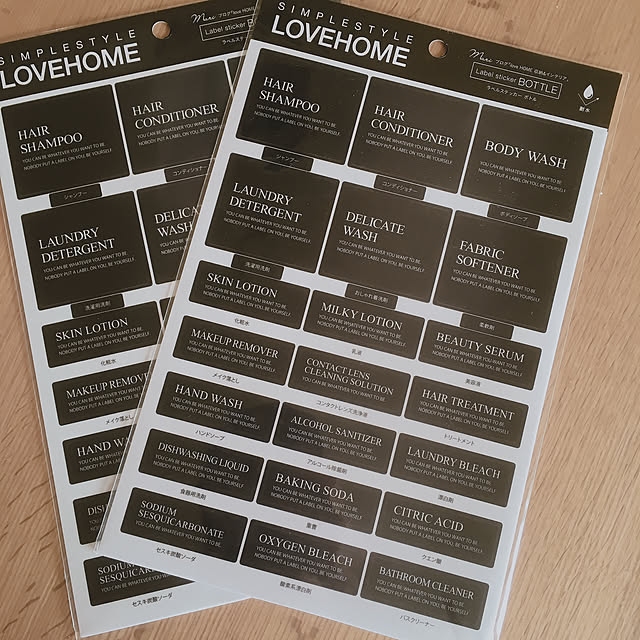 SIMPLESTYLE
LOVEHOME
Label sticker
SIMPLESTYLE
LOVEHOME
Mari ブログ"love HOME 収納&インテリア"
Label sticker BOTTLE
ラベルステッカー ボトル
耐水
HAIR
SHAMPOO
YOU CAN BE WHATEVER YOU WANT TO BE.
NOBODY PUT A LABEL ON YOU, BE YOURSELF.
シャンプー
HAIR
CONDITIONER
YOU CAN BE WHATEVER YOU WANT TO BE.
NOBODY PUT A LABEL ON YOU, BE YOURSELF.
コンディショナー
BODY WASH
YOU CAN BE WHATEVER YOU WANT TO BE.
NOBODY PUT A LABEL ON YOU, BE YOURSELF.
ボディソープ
LAUNDRY
DETERGENT
YOU CAN BE WHATEVER YOU WANT TO BE.
NOBODY PUT A LABEL ON YOU, BE YOURSELF.
洗濯用洗剤
DELICATE
WASH
YOU CAN BE WHATEVER YOU WANT TO BE.
NOBODY PUT A LABEL ON YOU, BE YOURSELF.
おしゃれ着洗剤
FABRIC
SOFTENER
YOU CAN BE WHATEVER YOU WANT TO BE.
NOBODY PUT A LABEL ON YOU, BE YOURSELF.
柔軟剤
SKIN LOTION
YOU CAN BE WHATEVER YOU WANT TO BE.
NOBODY PUT A LABEL ON YOU, BE YOURSELF.
化粧水
MILKY LOTION
YOU CAN BE WHATEVER YOU WANT TO BE.
NOBODY PUT A LABEL ON YOU, BE YOURSELF.
乳液
BEAUTY SERUM
YOU CAN BE WHATEVER YOU WANT TO BE.
NOBODY PUT A LABEL ON YOU, BE YOURSELF.
美容液
MAKEUP REMOVER
YOU CAN BE WHATEVER YOU WANT TO BE.
NOBODY PUT A LABEL ON YOU, BE YOURSELF.
メイク落とし
CONTACT LENS
CLEANING SOLUTION
YOU CAN BE WHATEVER YOU WANT TO BE.
コンタクトレンズ洗浄液
HAIR TREATMENT
YOU CAN BE WHATEVER YOU WANT TO BE.
NOBODY PUT A LABEL ON YOU, BE YOURSELF.
トリートメント
HAND WASH
YOU CAN BE WHATEVER YOU WANT TO BE.
NOBODY PUT A LABEL ON YOU, BE YOURSELF.
ハンドソープ
ALCOHOL SANITIZER
YOU CAN BE WHATEVER YOU WANT TO BE.
NOBODY PUT A LABEL ON YOU, BE YOURSELF.
アルコール除菌剤
LAUNDRY BLEACH
YOU CAN BE WHATEVER YOU WANT TO BE.
NOBODY PUT A LABEL ON YOU, BE YOURSELF.
漂白剤
DISHWASHING LIQUID
YOU CAN BE WHATEVER YOU WANT TO BE.
NOBODY PUT A LABEL ON YOU, BE YOURSELF.
食器用洗剤
BAKING SODA
YOU CAN BE WHATEVER YOU WANT TO BE.
NOBODY PUT A LABEL ON YOU, BE YOURSELF.
重曹
CITRIC ACID
YOU CAN BE WHATEVER YOU WANT TO BE.
NOBODY PUT A LABEL ON YOU, BE YOURSELF.
クエン酸
SODIUM
SESQUICARBONATE
YOU CAN BE WHATEVER YOU WANT TO BE.
セスキ炭酸ソーダ
OXYGEN BLEACH
YOU CAN BE WHATEVER YOU WANT TO BE.
NOBODY PUT A LABEL ON YOU, BE YOURSELF.
酸素系漂白剤
BATHROOM CLEANER
YOU CAN BE WHATEVER YOU WANT TO BE.
NOBODY PUT A LABEL ON YOU, BE YOURSELF.
バスクリーナー
HAIR
SHAMPOO
YOU CAN BE WHATEVER YOU WANT TO BE.
NOBODY PUT A LABEL ON YOU, BE YOURSELF.
シャンプー
HAIR
CONDITIONER
YOU CAN BE WHATEVER YOU WANT TO BE.
コンディショナー
LAUNDRY
DETERGENT
YOU CAN BE WHATEVER YOU WANT TO BE.
NOBODY PUT A LABEL ON YOU, BE YOURSELF.
洗濯用洗剤
DELICA
WASH
SKIN LOTION
YOU CAN BE WHATEVER YOU WANT TO BE.
NOBODY PUT A LABEL ON YOU, BE YOURSELF.
化粧水
MAKEUP REMOVE
メイク落とし
HAND WA
DISH
SODIUM
SESQUICAR
セスキ炭酸ソーダ